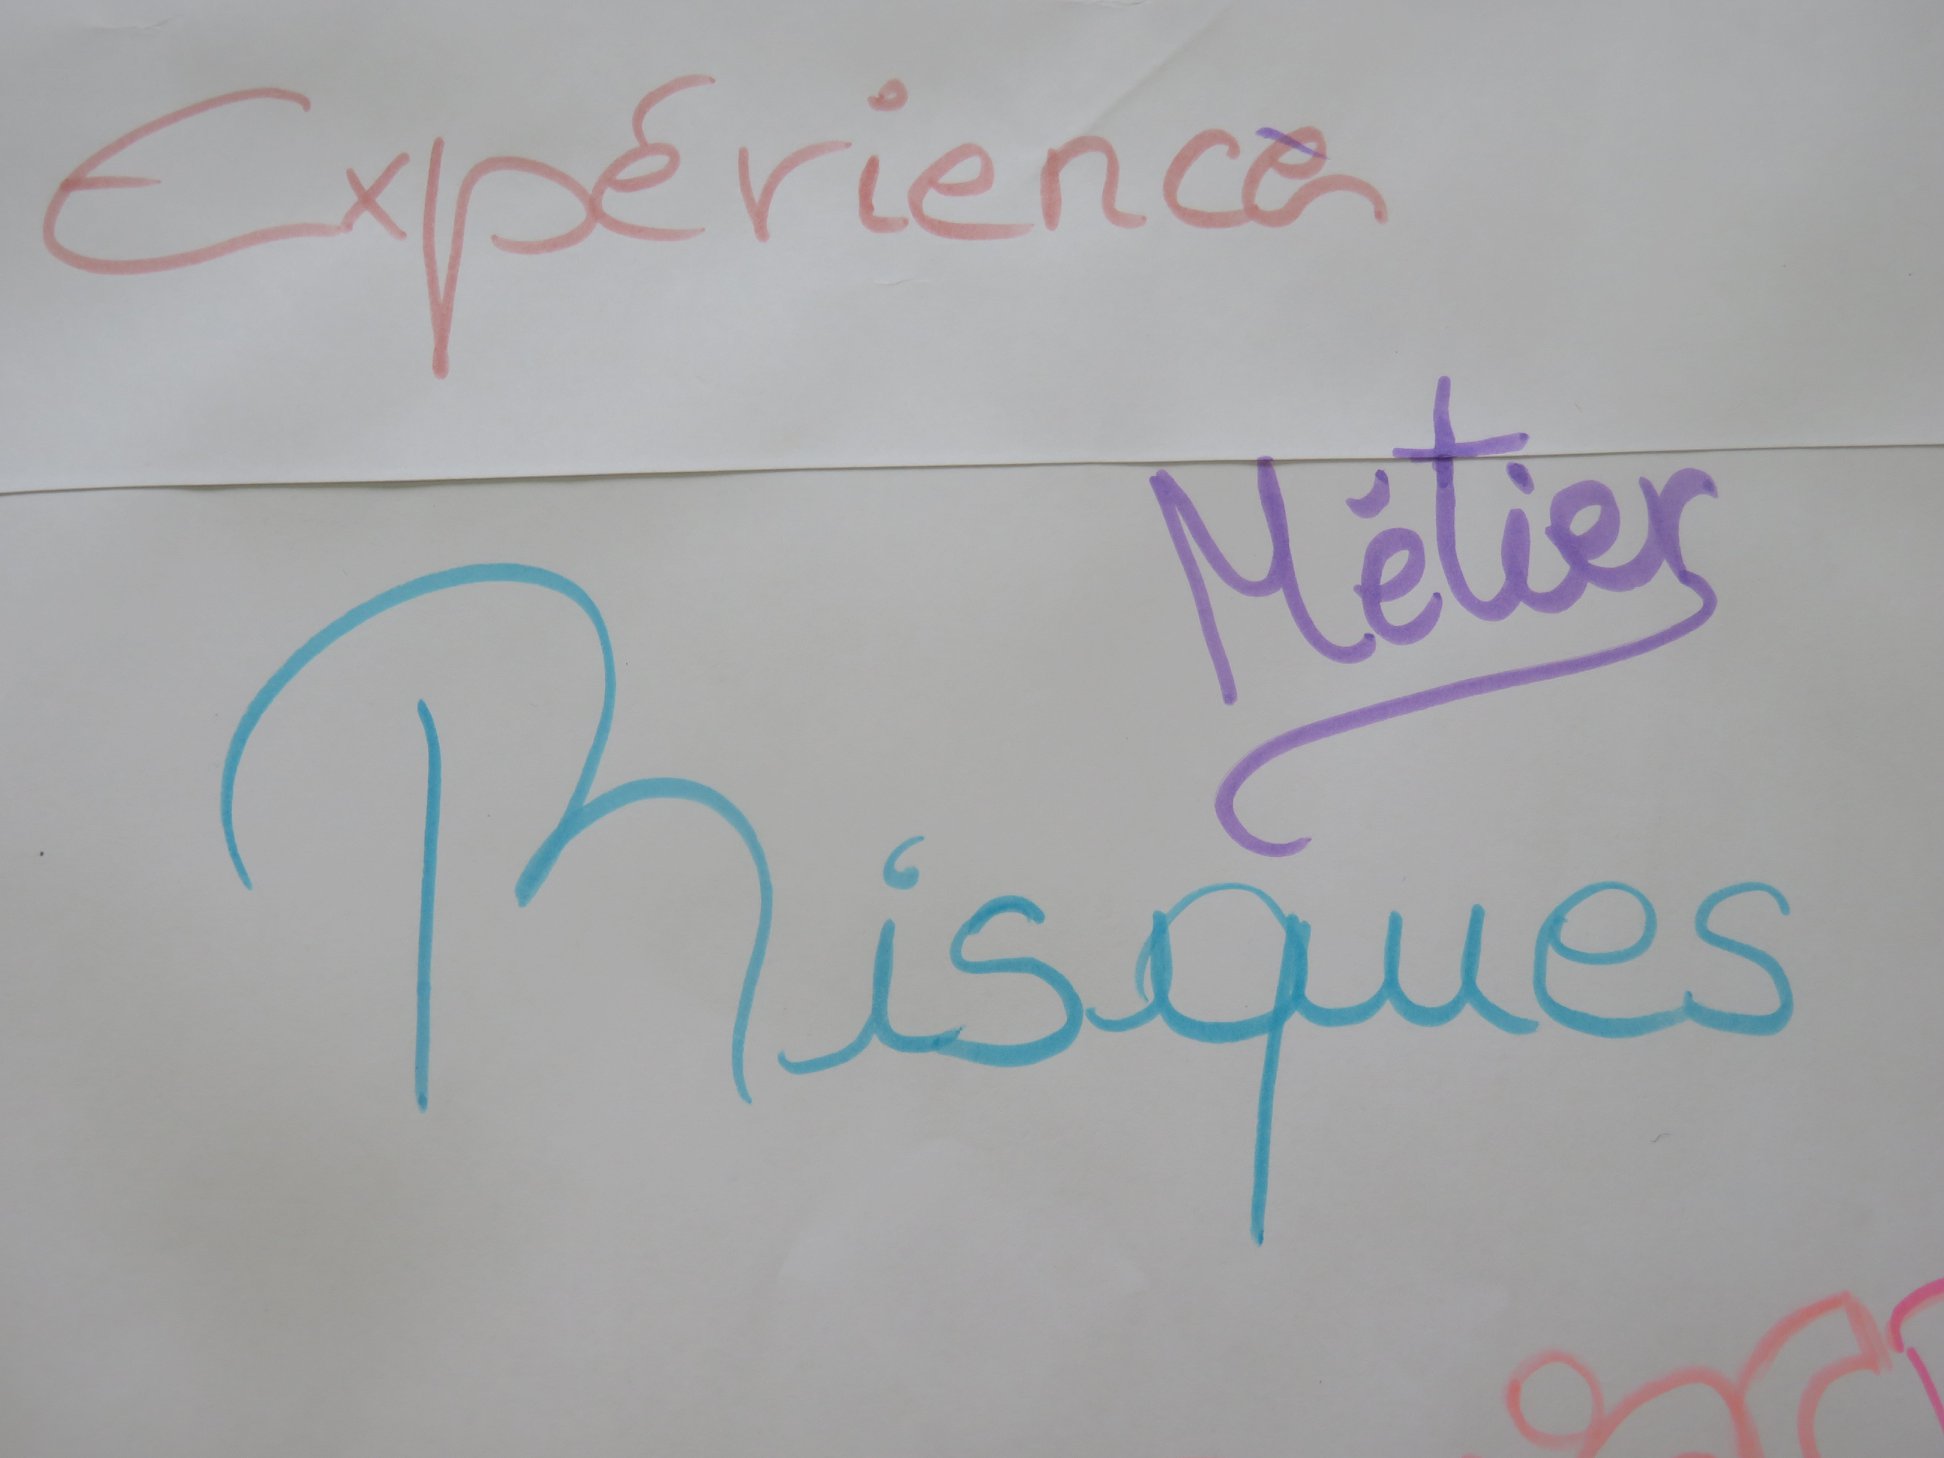 Expérience
Métier
Risques